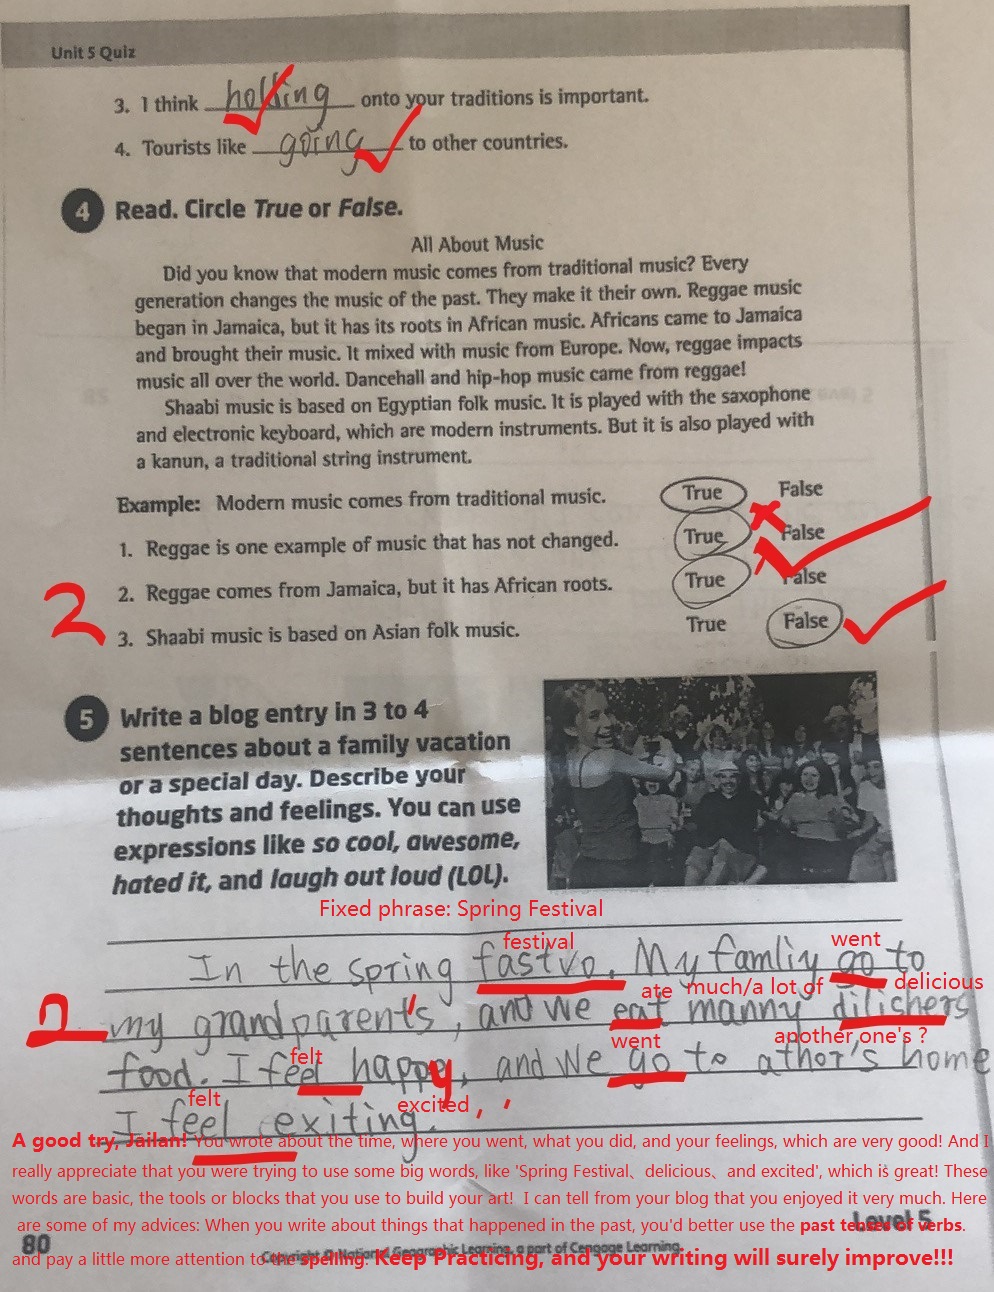 Unit 5 Quiz
3. I think holding onto your traditions is important.
4. Tourists like going to other countries.
4 Read. Circle True or False.
All About Music
Did you know that modern music comes from traditional music? Every
generation changes the music of the past. They make it their own. Reggae music
began in Jamaica, but it has its roots in African music. Africans came to Jamaica
and brought their music. It mixed with music from Europe. Now, reggae impacts
music all over the world. Dancehall and hip-hop music came from reggae!
Shaabi music is based on Egyptian folk music. It is played with the saxophone
and electronic keyboard, which are modern instruments. But it is also played with
a kanun, a traditional string instrument.
Example: Modern music comes from traditional music. True False
1. Reggae is one example of music that has not changed. True False
2. Reggae comes from Jamaica, but it has African roots. True False
2
3. Shaabi music is based on Asian folk music. True False
5 Write a blog entry in 3 to 4
sentences about a family vacation
or a special day. Describe your
thoughts and feelings. You can use
expressions like so cool, awesome,
hated it, and laugh out loud (LOL).
Fixed phrase: Spring Festival
festival went
In the spring fastvo. My famliy go to
ate much/a lot of delicious
2 my grandparent's, and we eat manny dilishers
felt went another one's ?
food. I feel happy, and we go to athor's home
felt excited
I feel exiting.
A good try, Jailan! You wrote about the time, where you went, what you did, and your feelings, which are very good! And I
really appreciate that you were trying to use some big words, like 'Spring Festival、delicious、and excited', which is great! These
words are basic, the tools or blocks that you use to build your art! I can tell from your blog that you enjoyed it very much. Here
are some of my advices: When you write about things that happened in the past, you'd better use the past tenses of verbs.
Level 5
80
and pay a little more attention to the spelling. Keep Practicing, and your writing will surely improve!!!
Copyright © National Geographic Learning, a part of Cengage Learning.